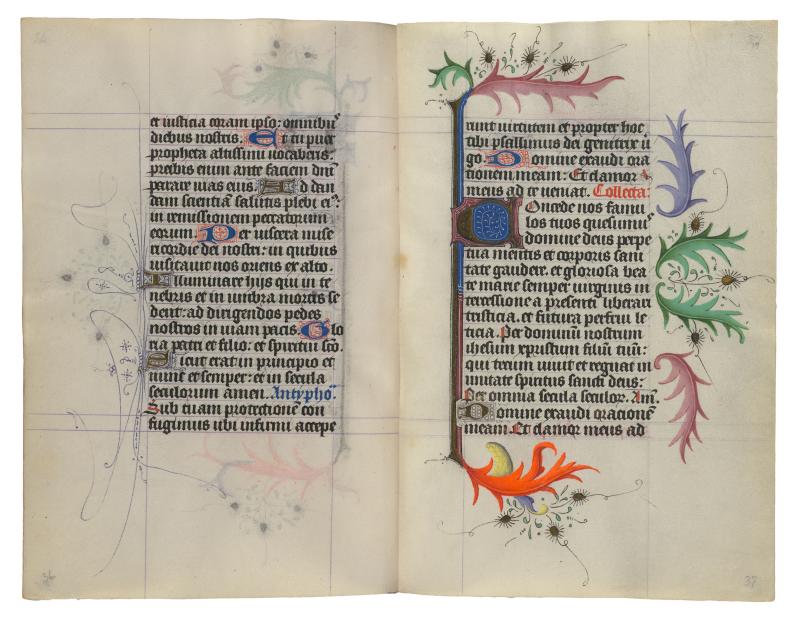 et iusticia coram ipso: omnibu᷒
diebus nostris. Et tu puer
propheta altissimi uocaberis:
preibis enim ante faciem dn̄i
parare uias eius. Ad dan
dam scientiā salutis plebi ei᷒:
in remissionem peccatorum
eorum. Per uiscera mise
ricordie dei nostri: in quibus
uisitauit nos oriens ex alto.
Illuminare hijs qui in te
nebris et in umbra mortis se
dent: ad dirigendos pedes
nostros in uiam pacis. Glo
ria patri et filio: et spiritui sc̄o.
Sicut erat in principio et
nunc et semper: et in secula
seculorum amen. Antyphō.
Sub tuam protectionē con
fugimus ubi infirmi accepe
runt uirtutem et propter hoc
tibi psallimus dei genitrix ū
go. Domine exaudi ora
tionem meam: Et clamor
meus ad te ueniat. Collecta:
Concede nos famu
los tuos quesumu᷒
domine deus perpe
tua mentis et corporis sani
tate gaudere. et gloriosa bea
te marie semper uirginis in
tercessione a presenti liberari
tristicia. et futura perfrui le
ticia. Per dominū nostrum
ihesum xpristum filiū tuū:
qui tecum uiuit et regnat in
unitate spiritus sancti deus:
Per omnia secula seculor. Am̄.
Domine exaudi orationē
meam. Et clamor meus ad
37